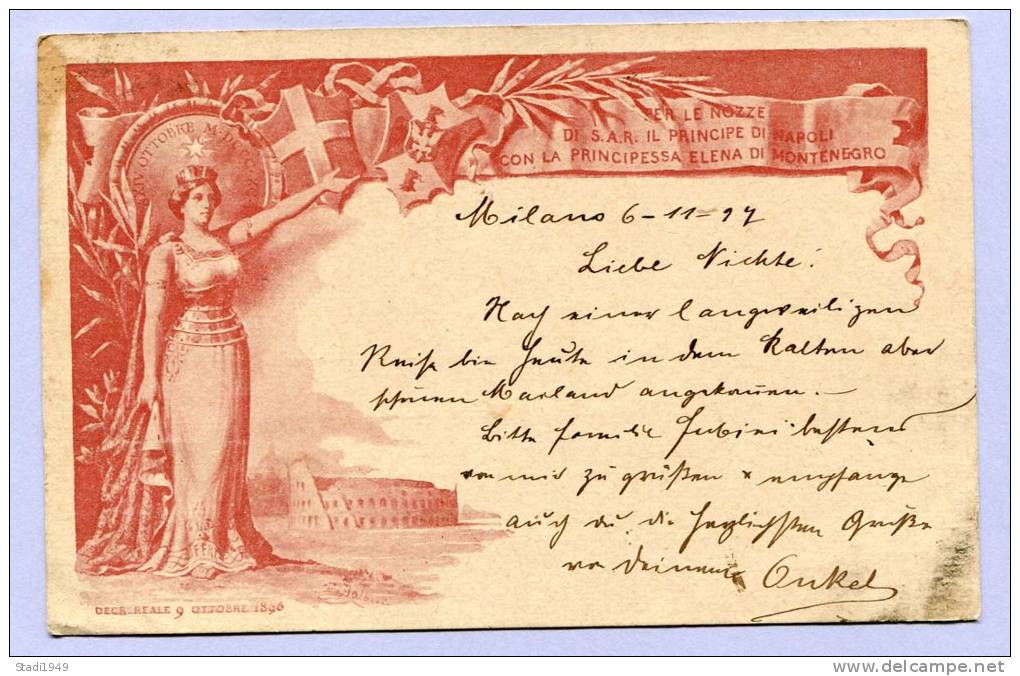 PER LE NOZZE
DI S.A.R. IL PRINCIPE DI NAPOLI
CON LA PRINCIPESSA ELENA DI MONTENEGRO
XXIV OTTOBRE
Milano 6-11-97
Liebe Nichte!
Nach einer langweiligen
Reise bin heute in dem kalten aber
schönen Mailand angekommen. –
Bitte Familie bestens
von mir zu grüßen & empfange
auch du die herzlichsten Grüße
von deinem Onkel
FERT
DECR. REALE 9 OTTOBRE 1896
Stadi1949
delcampe.net